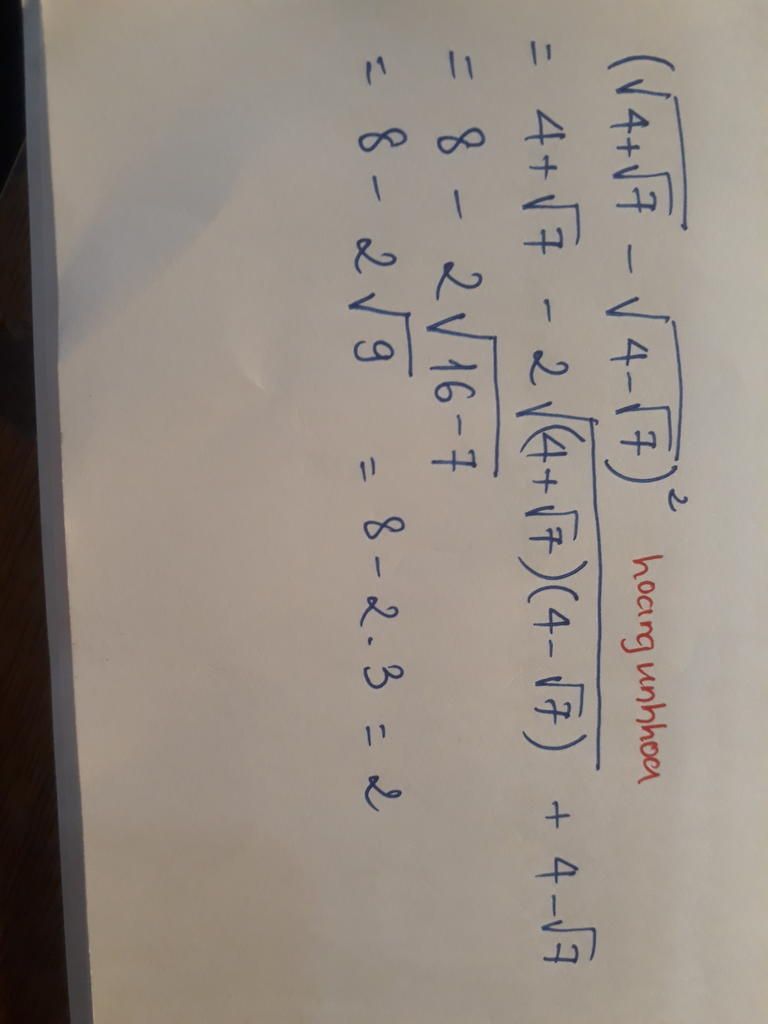 (√(4+√7) - √(4-√7))²
hoangunhhoa
= 4+√7 - 2√((4+√7)(4-√7)) + 4-√7
= 8 - 2√(16-7)
= 8 - 2√9 = 8-2.3 = 2